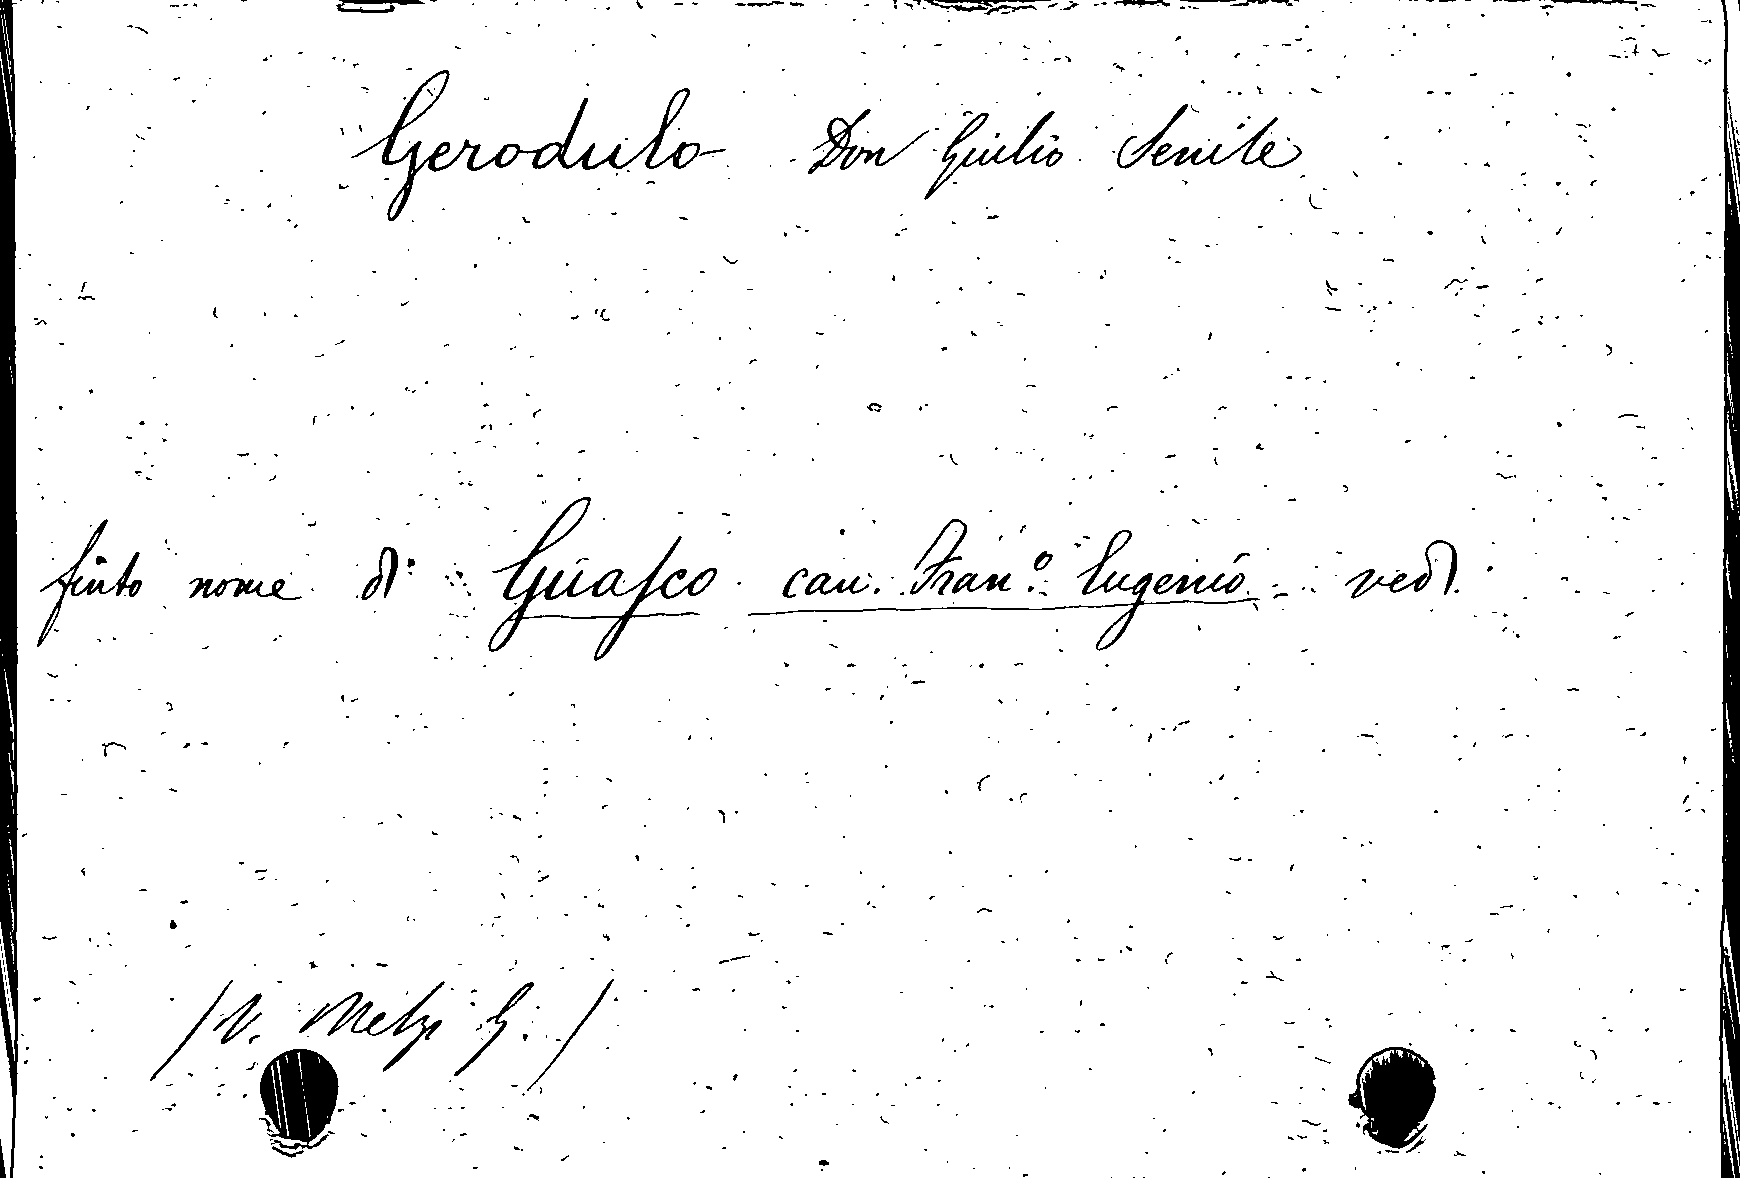 Gerodulo Don Giulio Senile
finto nome di Guasco can. Fran.º Eugenio - vedi.
/V. Melzi G./